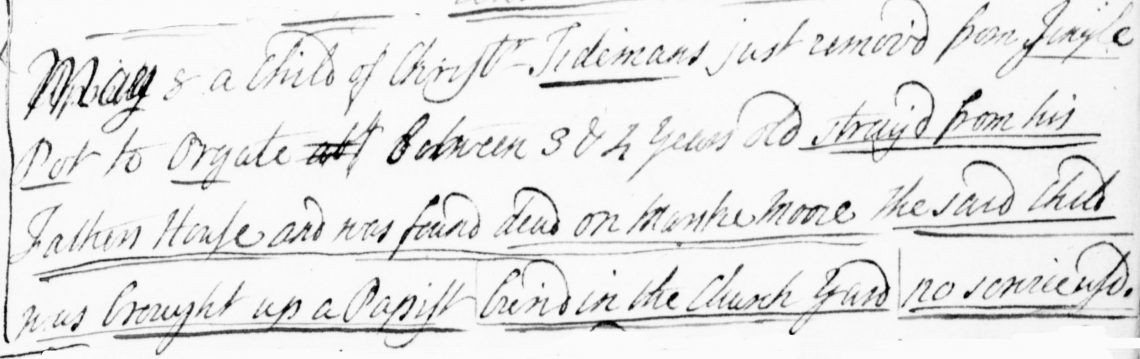 May 8 a Child of Christr Tidemans just remov'd from Jingle
Pot to Orgate abt between 3 & 4 years old stray'd from his
Fathers House and was found dead on Marske Moore the said Child
was brought up a Papist buried in the Church Yard no service used.